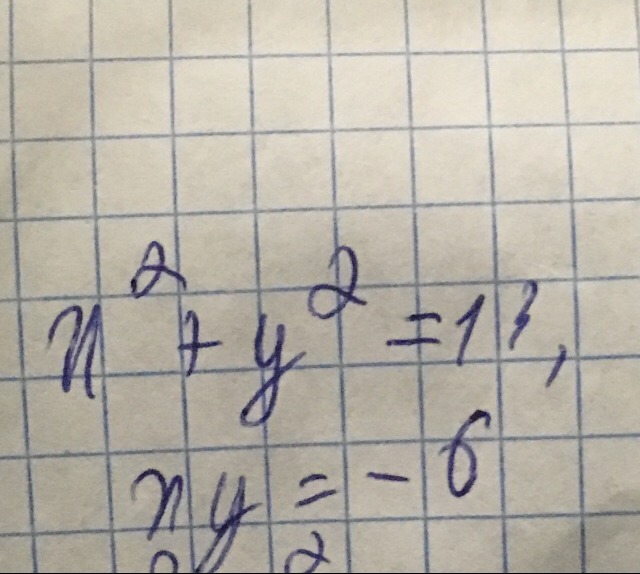 x² + y² = 13,
xy = - 6